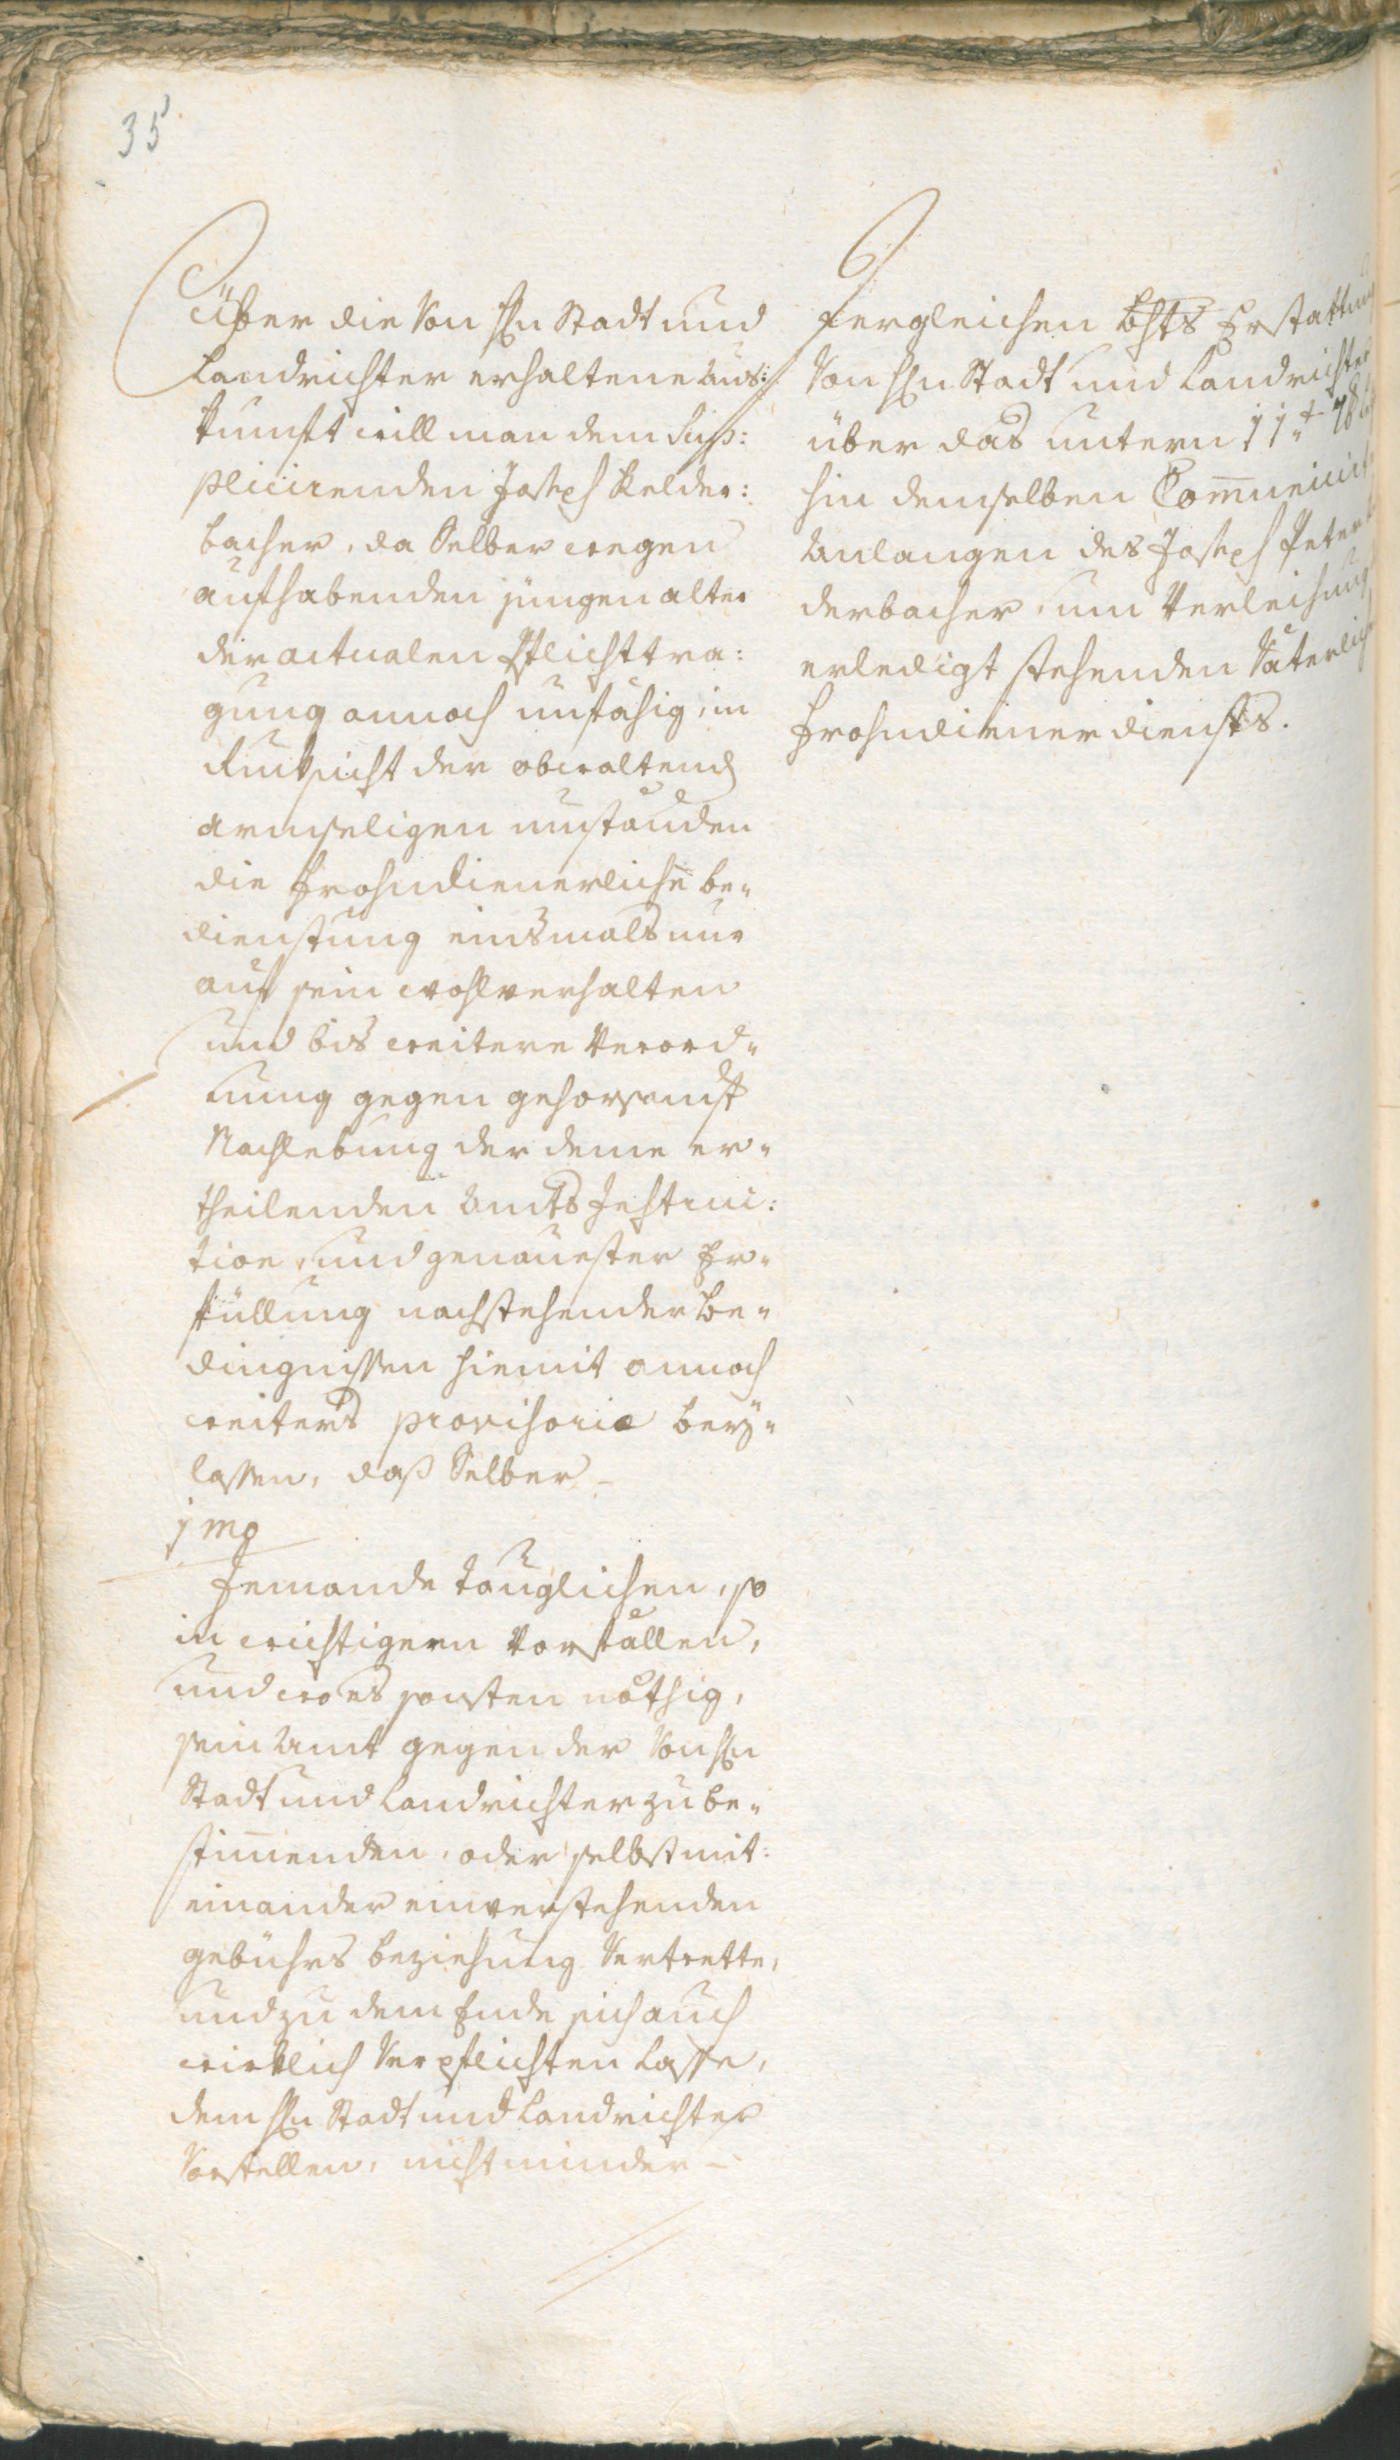 35
Über die von Hn Stadt und
Landrichter erhaltene Aus:
kunft will man dem Sup:
plicirenden Joseph Kelder:
bacher, da Selber wegen
aufhabenden jungen alter
der actualen Pflichttra:
gung annoch unfähig, in
Rucksicht der obwaltend
armseligen umständen
die Frohndienerliche be„
dienstung einsmals nur
auf sein wohlverhalten
und bis weitere Verord„
nung gegen gehorsamst
Nachlebung der deme er„
theilenden Amts Instruc:
tion, und genauester Er„
füllung nachstehender Be„
dingnissen hiemit annoch
weiters provisorie bey„
lassen, daß Selber –
1mo
Jemande tauglichen, so
in wichtigern Vorfällen,
und wo es sonsten nöthig,
sein Amt gegen der von Hn
Stadt und Landrichter zu be„
stimenden, oder selbst mit:
einander einverstehenden
gebührs beziehung Vertrette,
und zu dem Ende sich auch
wirklich Verpflichten Lasse,
dem Hn Stadt und Landrichter
Vorstellen, nicht minder –
Dergleichen Bhts Erstattung
von Hn Stadt und Landrichter
über das untern 11t 7b
hin demselben Comunicirte
Anlangen des Joseph Peter
derbacher, um Verleihung
erledigt stehenden Väterlich
Frohndiener diensts.